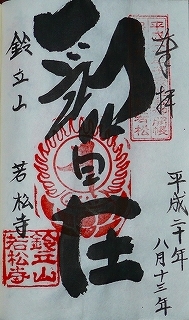 奉拝
平成二十年
八月十三年
観自在
鈴立山
若松寺
鈴立山
若松寺